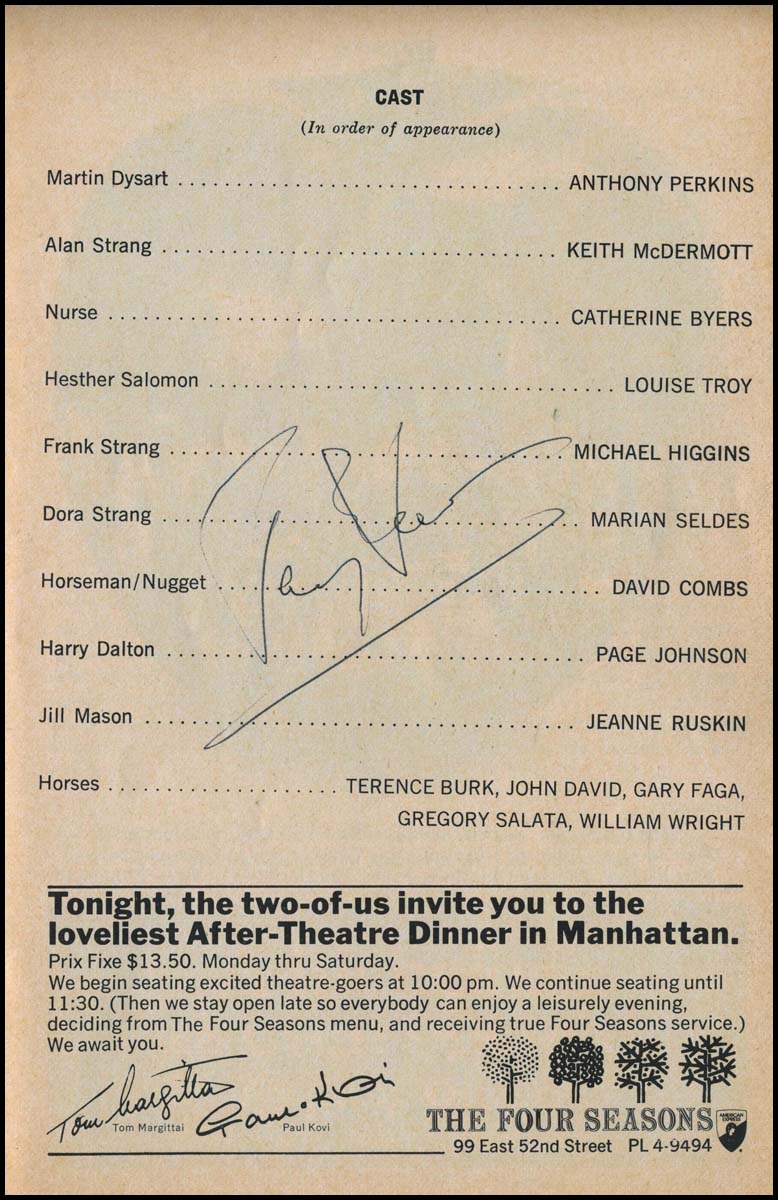 CAST
(In order of appearance)
Martin Dysart . . . . . . . . . . . . . . . . . . . . . . . . . . . . . . . . . ANTHONY PERKINS
Alan Strang . . . . . . . . . . . . . . . . . . . . . . . . . . . . . . . . . . KEITH McDERMOTT
Nurse . . . . . . . . . . . . . . . . . . . . . . . . . . . . . . . . . . . . . . . CATHERINE BYERS
Hesther Salomon . . . . . . . . . . . . . . . . . . . . . . . . . . . . . . . . . . . LOUISE TROY
Frank Strang . . . . . . . . . . . . . . . . . . . . . . . . . . . . . . . . . . MICHAEL HIGGINS
Dora Strang . . . . . . . . . . . . . . . . . . . . . . . . . . . . . . . . . . . . MARIAN SELDES
Horseman/Nugget . . . . . . . . . . . . . . . . . . . . . . . . . . . . . . . . . DAVID COMBS
Harry Dalton . . . . . . . . . . . . . . . . . . . . . . . . . . . . . . . . . . . . PAGE JOHNSON
Jill Mason . . . . . . . . . . . . . . . . . . . . . . . . . . . . . . . . . . . . . JEANNE RUSKIN
Horses . . . . . . . . . . . . . . . . . . . . TERENCE BURK, JOHN DAVID, GARY FAGA,
GREGORY SALATA, WILLIAM WRIGHT
Tonight, the two-of-us invite you to the
loveliest After-Theatre Dinner in Manhattan.
Prix Fixe $13.50. Monday thru Saturday.
We begin seating excited theatre-goers at 10:00 pm. We continue seating until
11:30. (Then we stay open late so everybody can enjoy a leisurely evening,
deciding from The Four Seasons menu, and receiving true Four Seasons service.)
We await you.
Tom Margittai
Paul Kovi
Tom Margittai Paul Kovi
THE FOUR SEASONS
AMERICAN EXPRESS
99 East 52nd Street PL 4-9494